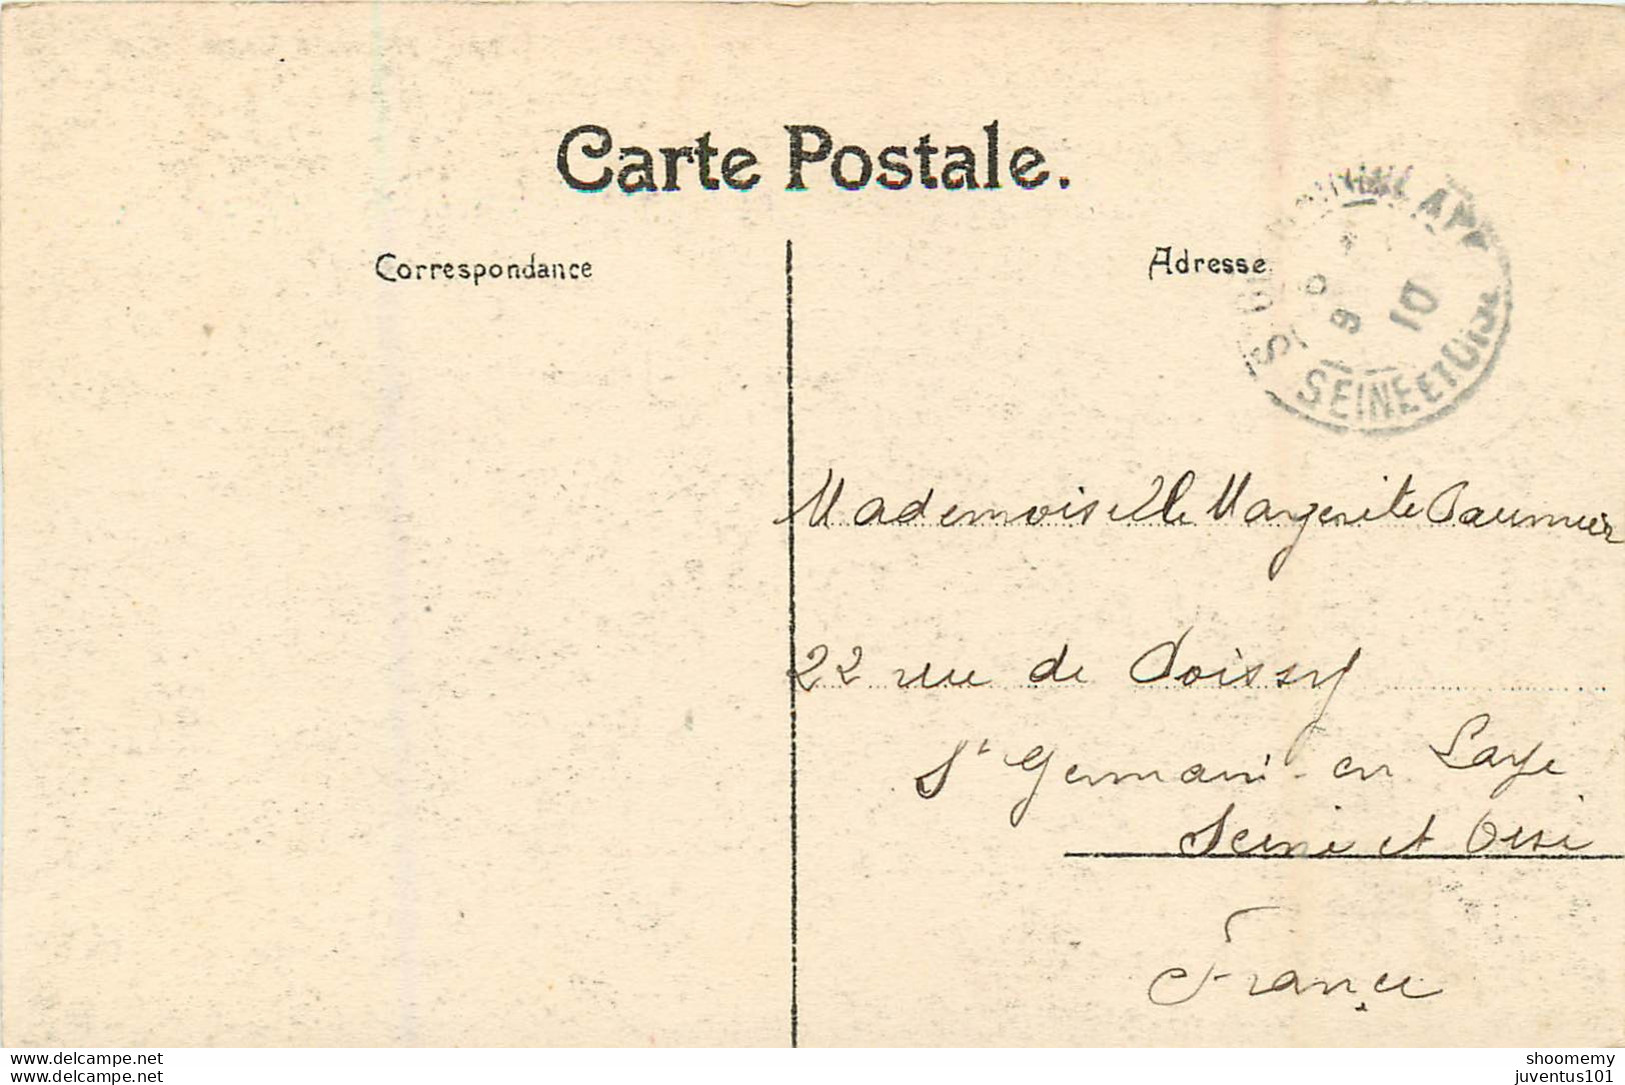 Carte Postale.
Correspondance
Adresse
9 10
SEINE ET OISE
Mademoiselle Marguerite Paumier
22 rue de Poissy
St Germain en Laye
Seine et Oise
France
www.delcampe.net
www.delcampe.net
shoomemy
juventus101